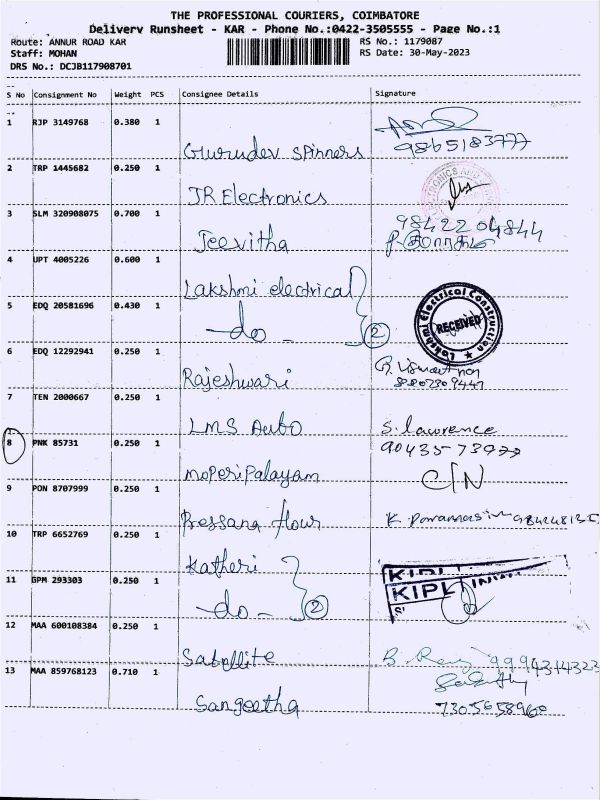 THE PROFESSIONAL COURIERS, COIMBATORE
Delivery Runsheet - KAR - Phone No.:0422-3505555 - Page No.:1
Route: ANNUR ROAD KAR RS No.: 1179087
Staff: MOHAN RS Date: 30-May-2023
DRS No.: DCJB117908701
S No Consignment No Weight PCS Consignee Details Signature
1 RJP 3149768 0.380 1
Gurudev Spinners 9865183777
2 TRP 1445682 0.250 1
JR Electronics
3 SLM 320908075 0.700 1 9842204844
Jeevitha
4 UPT 4005226 0.600 1
Lakshmi electrical
5 EDQ 20581696 0.430 1
-do- 2
Lakshmi Electrical Construction
RECEIVED
6 EDQ 12292941 0.250 1
Rajeshwari
7 TEN 2000667 0.250 1
LMS Auto S. Lawrence
8 PNK 85731 0.250 1 90435-73977
Moperipalayam C/N
9 PON 8707999 0.250 1
Pressana flour
10 TRP 6652769 0.250 1
Katheri
KIPL
KIPL
11 GPM 293303 0.250 1
-do- 2
12 MAA 600108384 0.250 1
Satellite 9994314323
13 MAA 859768123 0.710 1
Sangeetha 7305658968